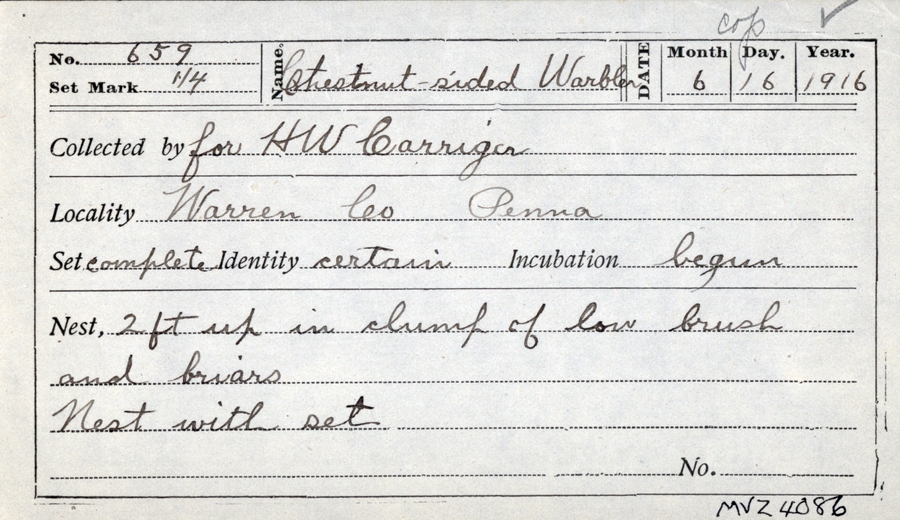 cop
No. 659 Name. Chestnut-sided Warbler DATE Month Day. Year.
Set Mark 1/4 6 16 1916
Collected by for HW Carriger
Locality Warren Co Penna
Set complete Identity certain Incubation begun
Nest, 2 ft up in clump of low brush
and briars
Nest with set
No.
MVZ 4086